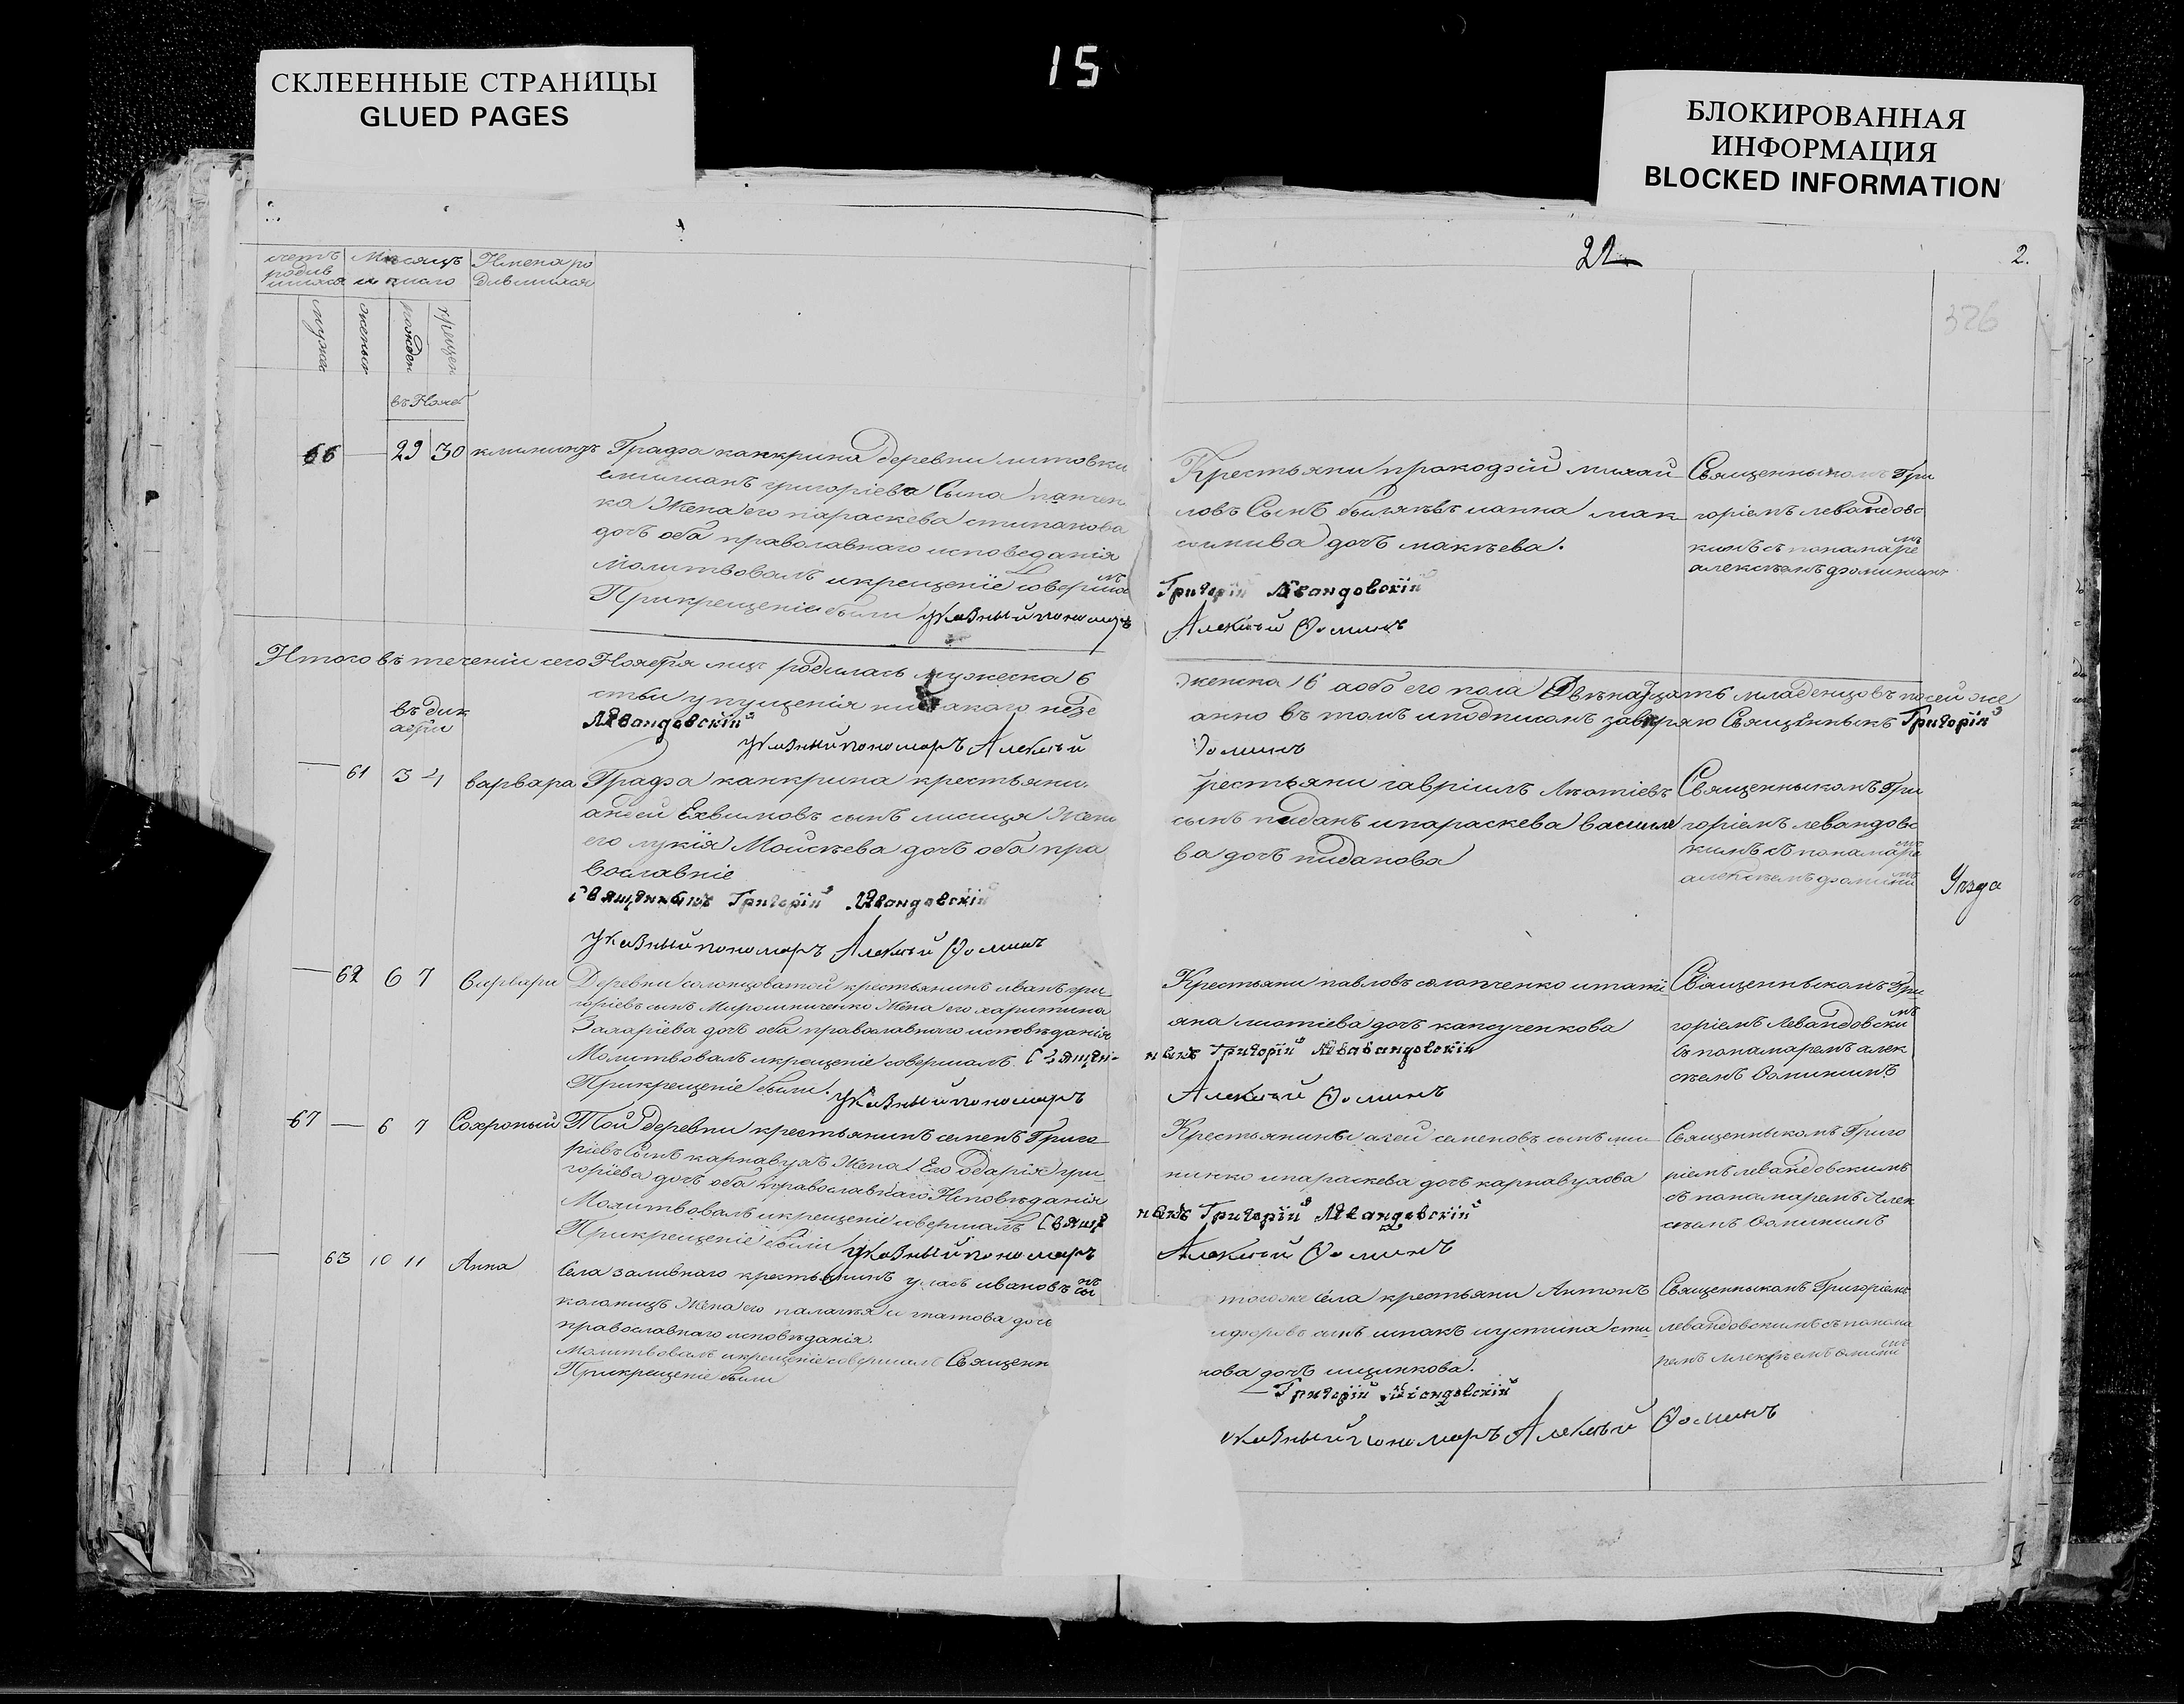 СКЛЕЕННЫЕ СТРАНИЦЫ
GLUED PAGES
15
БЛОКИРОВАННАЯ
ИНФОРМАЦИЯ
BLOCKED INFORMATION
22
2.
326
счетъ
родив
шихся
Месяцъ
и число
Имена ро
дившихся
мужеск
женск
рожден
крещен
въ Нояб
66 — 29 30
Графа канкрина деревни литовки
емилианъ григоріева Сына панчен
ка Жена его параскева стипанова
дочъ оба праволавнаго исповеданія
Молитвовалъ икрещеніе совершалъ
Прикрещеніи были указный пономаръ
Крестьяни прокофій михай
ловъ Сынъ ианна мак
симива дочъ макѣева.
Григорій Левандовскій
Алексѣй Ѳоминъ
Священыкомъ Гри
горіемъ левандовс
кимъ съ понамаремъ
алексѣемъ фоминимъ
Итого въ теченіи сего Ноября мця родилась мужеска 6
женска 16 аобоего пола Двѣнадцать младенцовъ посей же
стьи упущенія никакого незде
лано въ томъ иподписомъ завѣряю Священныкъ Григорій
Левандовскій
Указный пономаръ Алексѣй
Ѳоминъ
въ дик
абри
— 61 3 4 варвара
Графа канкрина крестьяни
андей Ехвимовъ сынъ лисиця Жена
его лукія Моисѣева дочъ оба пра
вославніе
Священныкъ Григорій Левандовскій
Указный пономаръ Алексѣй Ѳоминъ
крестьяни гавріилъ
сынъ пиданъ ипараскева василе
ва дочъ пиданова
Священыкомъ Гри
горіемъ левандовс
кимъ съ понамаремъ
алексѣемъ фоминимъ
Уѣзда
— 62 6 7 Варвари
Деревни солонцоватой крестьянинъ иванъ гри
горіевъ сынъ Мирошниченко Жена его харитина
Захаріева дочъ оба православнаго исповѣданія
Молитвовалъ икрещеніе совершалъ. Священ-
Прикрещеніе были. Указный пономаръ
Крестьяни павловъ итати
яна дочъ
ныкъ Григорій
Алексѣй Ѳоминъ
Священныкомъ Гри
горіемъ Левандовскимъ
съ понамаремъ алек
сѣемъ Ѳоминимъ
67 — 6 7 Сохроный
Той деревни крестьянинъ семенъ Григо
ріевъ Сынъ карнавухъ Жена Его одарія гри
горіева дочъ оба православнаго Исповѣданія
Молитвовалъ икрещеніе совершалъ Свящ
Прикрещеніе были указный пономаръ
Крестьянинъ семеновъ сынъ ми
ненко ипараскева дочъ карнавухова
ныкъ Григорій Левандовскій
Алексѣй Ѳоминъ
Священныкомъ Григо
ріемъ левандовскимъ
съ понамаремъ Алек
сѣемъ Ѳоминимъ
— 63 10 11 Анна
Села заливнаго крестьянинъ ивановъ сынъ
коломиць Жена его палагея дочъ
православнаго исповѣданія.
Молитвовалъ икрещеніе совершалъ Священн
Прикрещеніе были
тогоже села крестьяни Антонъ
шпакъ иустина сти
нова дочъ
Григорій Левандовскій
указный пономаръ Алексѣй Ѳоминъ
Священныкомъ Григоріемъ
левандовскимъ съ понома
ремъ Алексѣемъ Ѳоминимъ